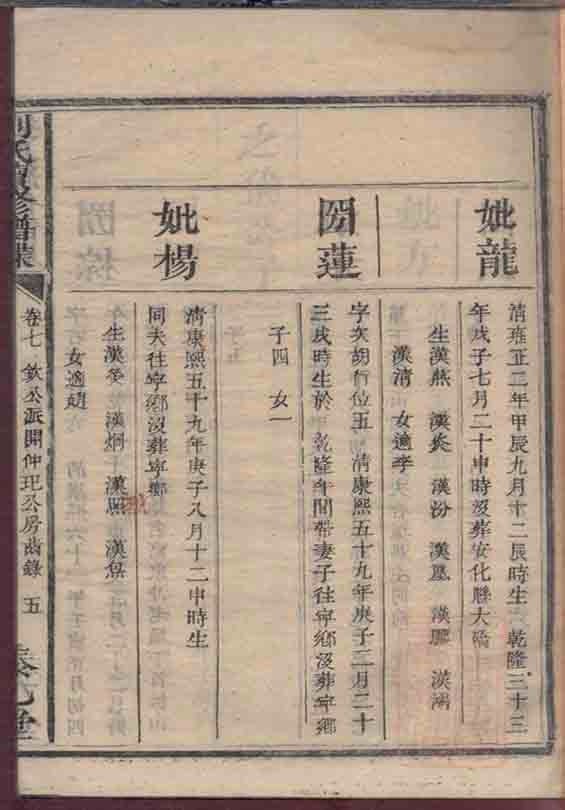 妣龍
清雍正二年甲辰九月十二辰時生 乾隆三十三
年戊子七月二十申時沒葬安化縣大橋
生漢燕 漢炎 漢汾 漢 漢 漢湖
漢清 女適李
圀蓮
字 胡行位五 清康熙五十九年庚子三月二十
三戌時生於 乾隆年間帶妻子往寧鄉沒葬寧鄉
子四 女一
妣楊
清康熙五十九年庚子八月十二申時生
同夫往寧鄉沒葬寧鄉
生漢 漢炯 漢照 漢魚
女適趙
劉氏續修譜牒
卷七 欽公派開仲玘公房齒錄 五
堂